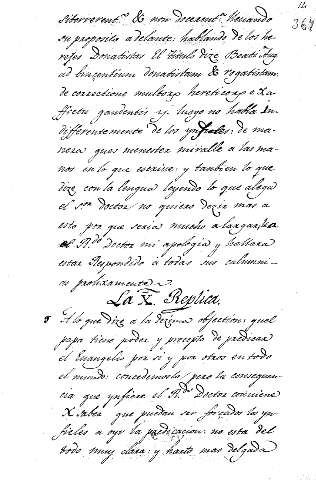 12
367
siterrerent.ᵘʳ & non docerent.ᵘʳ lleuando
su proposito adelante: hablando de los he-
rejes Donatistas El titulo dize Beati Aug
ad vincentium donatistam & rogatistam
de correctione multorȝ hereticorȝ &
affictu gaudentes y luego no habla in-
differentemente de los ynfieles: de ma-
nera ques menester miralle a las ma-
nos en lo que escriue: y tambien lo que
dize con la lengua leyendo lo que alega
el S.ᵒʳ doctor: no quiero dezir mas a
esto por que seria mucho alargar: lea
el R.ᵈᵒ Doctor mi apologia y hallara
estar Respondido a todas sus calumni-
as prolixamente.
La X. Replica.
A lo que dize a la dezima objection: quel
papa tiene poder y precepto de predicar
el Euangelio por si y por otros en todo
el mundo: concedemoslo / pero la consequen-
cia que ynfiere el R.ᵈᵒ Doctor conuiene
a saber que puedan ser forçados los yn-
fieles a oyr la predicacion: no esta del
todo muy clara: y harto mas delgada